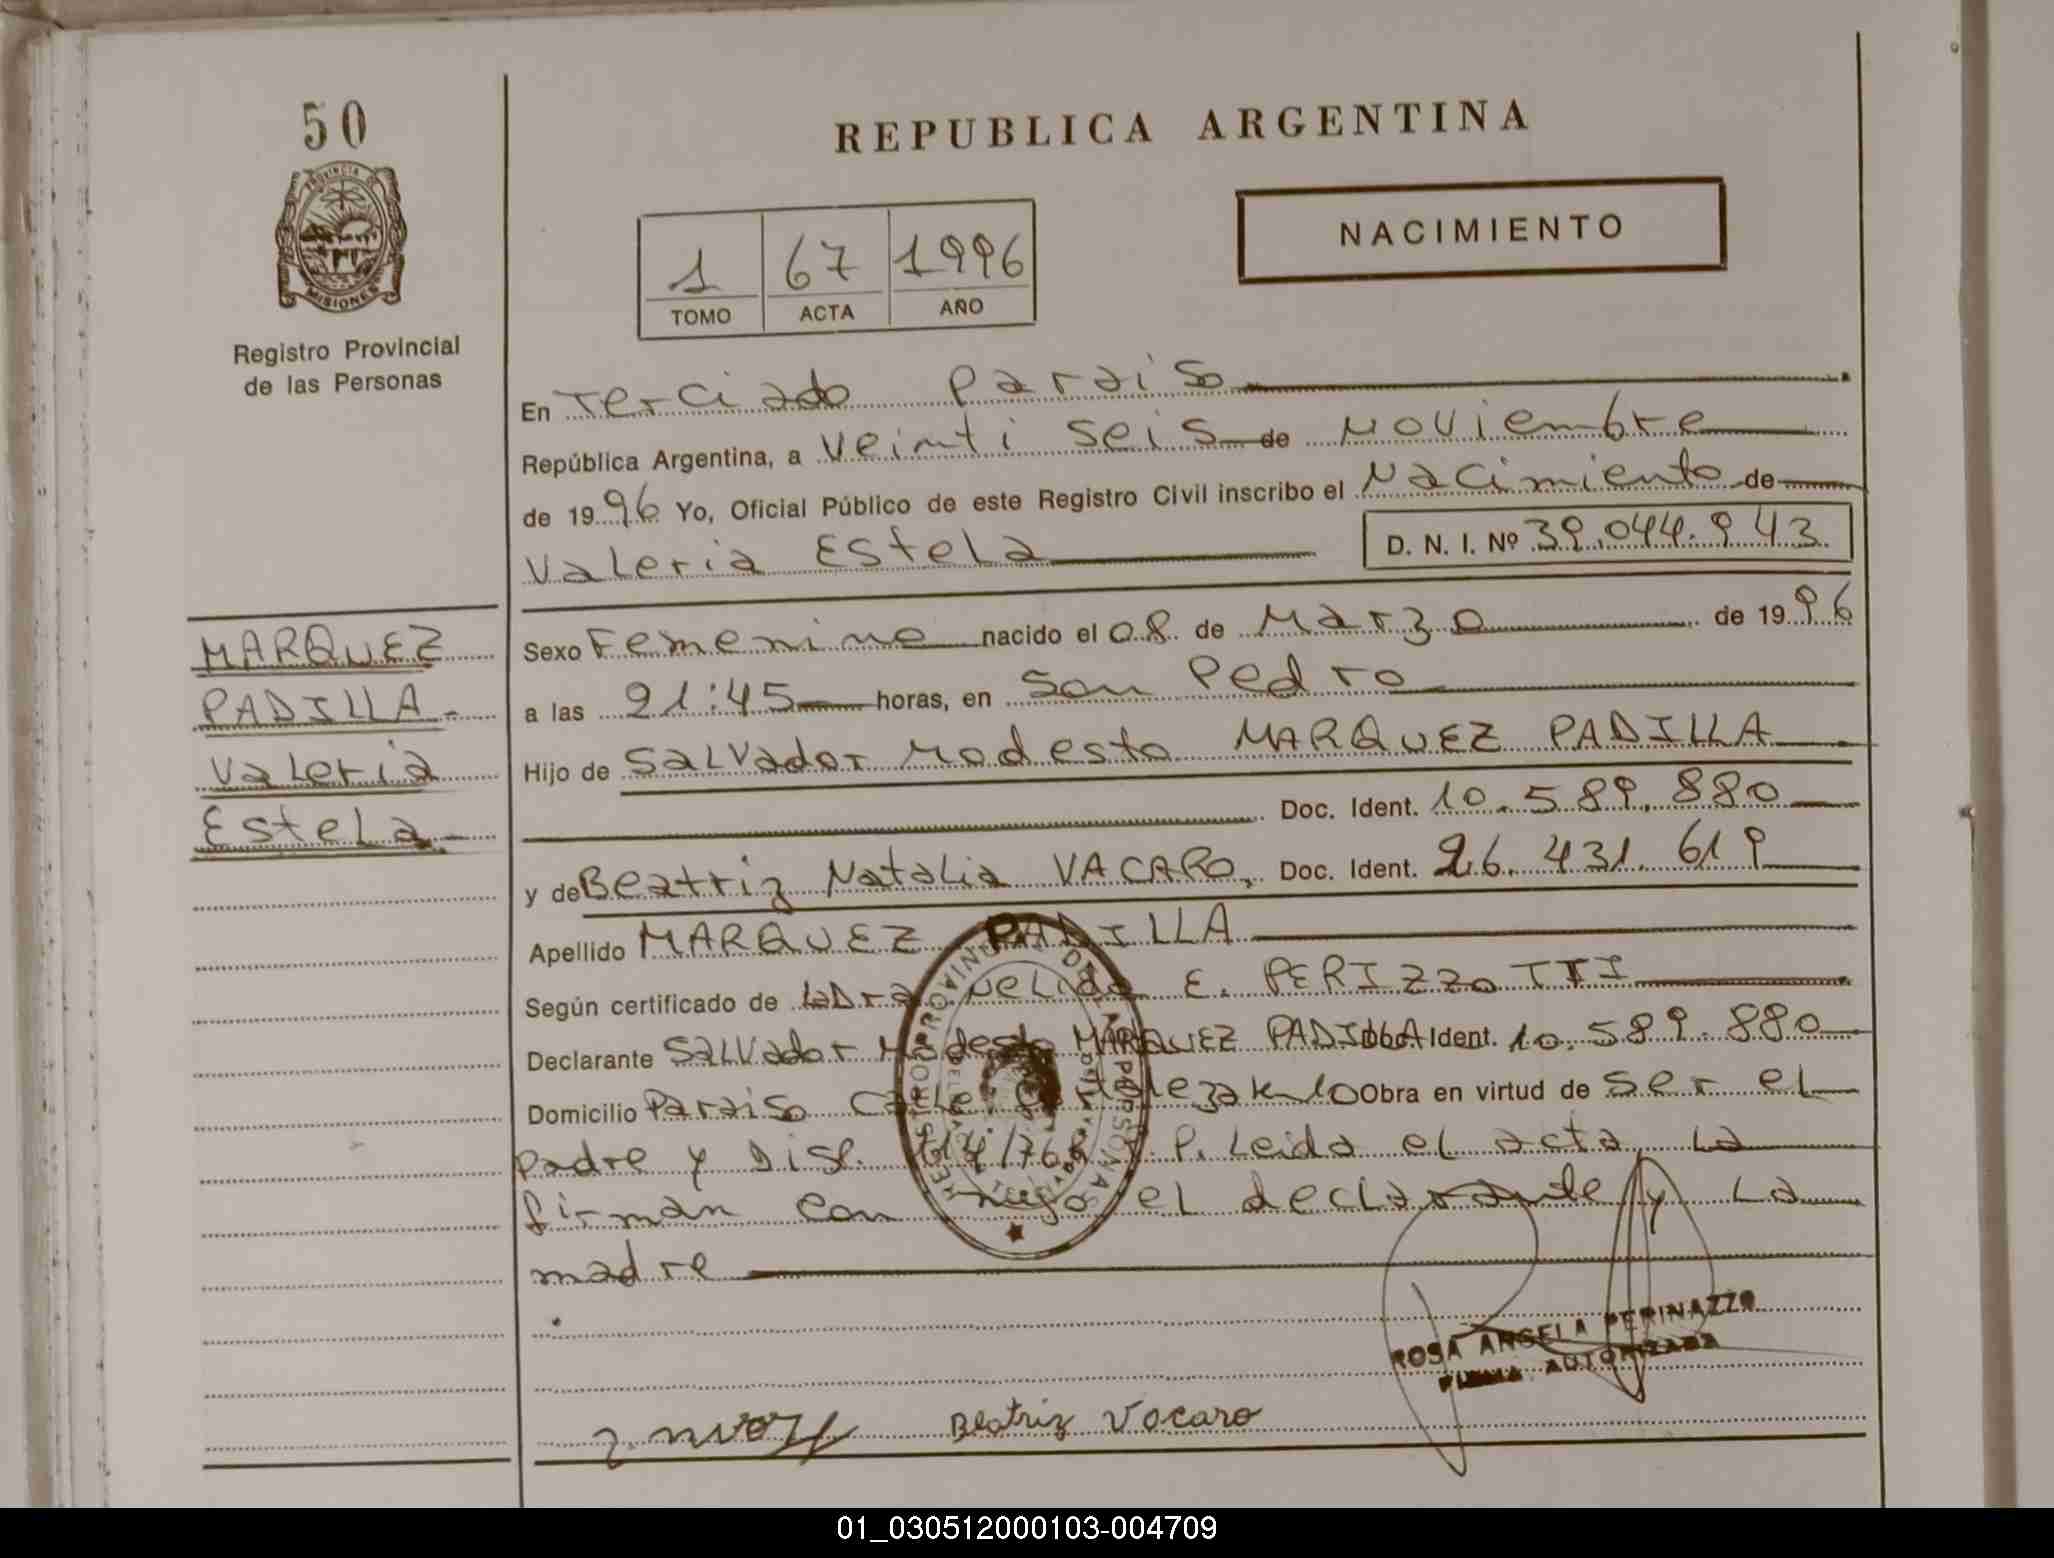 50
REPUBLICA ARGENTINA
PROVINCIA DE
MISIONES
Registro Provincial
de las Personas
NACIMIENTO
1 67 1996
TOMO ACTA AÑO
En Terciado Paraiso
República Argentina, a Veinti Seis de Noviembre
de 1996 Yo, Oficial Público de este Registro Civil inscribo el Nacimiento de
Valeria Estela D. N. I. Nº 39.044.943
MARQUEZ
PADILLA
Valeria
Estela
Sexo Femenino nacido el 08 de Marzo de 1996
a las 21:45 horas, en San Pedro
Hijo de Salvador Modesto MARQUEZ PADILLA
Doc. Ident. 10.589.880
y de Beatriz Natalia VACARO, Doc. Ident. 26.431.619
Apellido MARQUEZ PADILLA
Según certificado de la Dra Nelida E. PERIZZOTTI
Declarante Salvador Modesto MARQUEZ PADILLA Doc. Ident. 10.589.880
Domicilio Paraiso Calle Obra en virtud de Ser el
padre y Disp. P. Leida el acta, La
firman con migo el declarante y La
madre
ROSA ANGELA PERINAZZO
FIRMA AUTORIZADA
Beatriz Vocaro
01_030512000103-004709